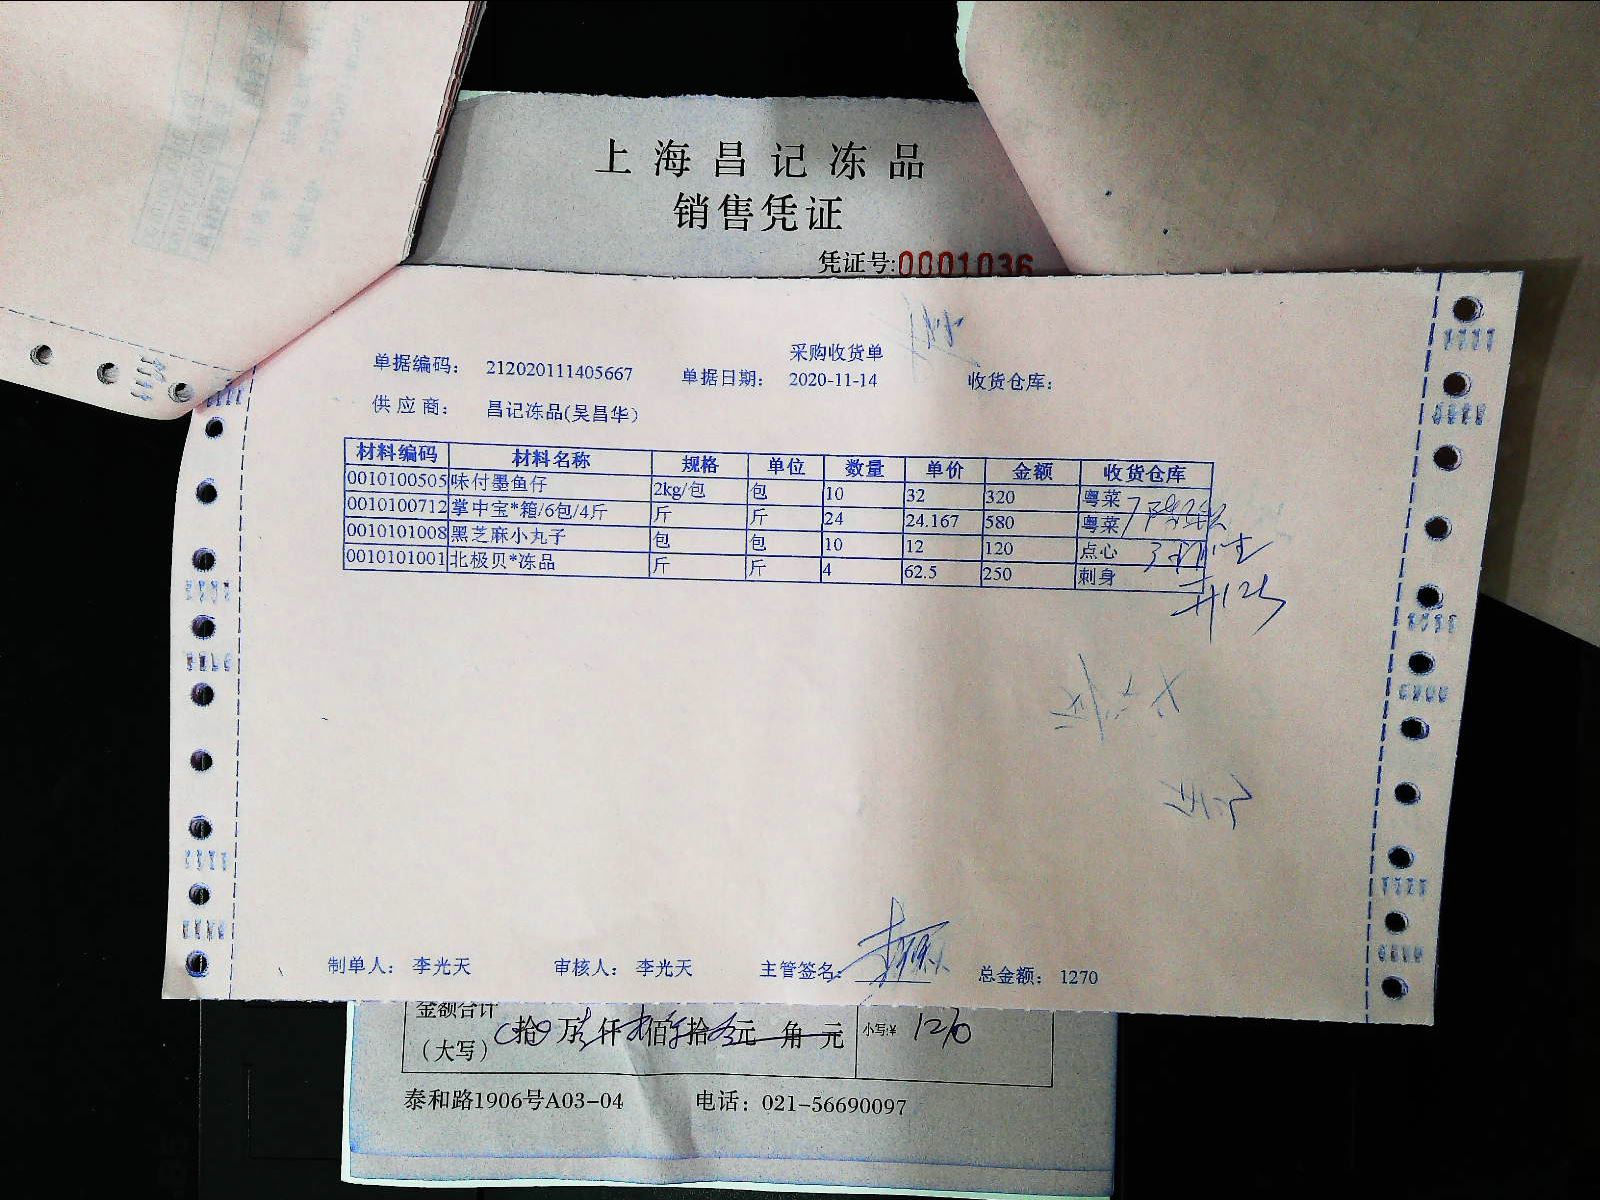 上海昌记冻品
销售凭证
凭证号:0001036
采购收货单
单据编码： 212020111405667 单据日期： 2020-11-14 收货仓库：
供应商： 昌记冻品(吴昌华)
材料编码 材料名称 规格 单位 数量 单价 金额 收货仓库
0010100505 味付墨鱼仔 2kg/包 包 10 32 320 粤菜
0010100712 掌中宝*箱/6包/4斤 斤 斤 24 24.167 580 粤菜
0010101008 黑芝麻小丸子 包 包 10 12 120 点心
0010101001 北极贝*冻品 斤 斤 4 62.5 250 刺身
制单人： 李光天 审核人： 李光天 主管签名： 总金额： 1270
金额合计
（大写） 拾 万 仟 佰 拾 元 角 元 小写:¥ 1270
泰和路1906号A03-04 电话：021-56690097